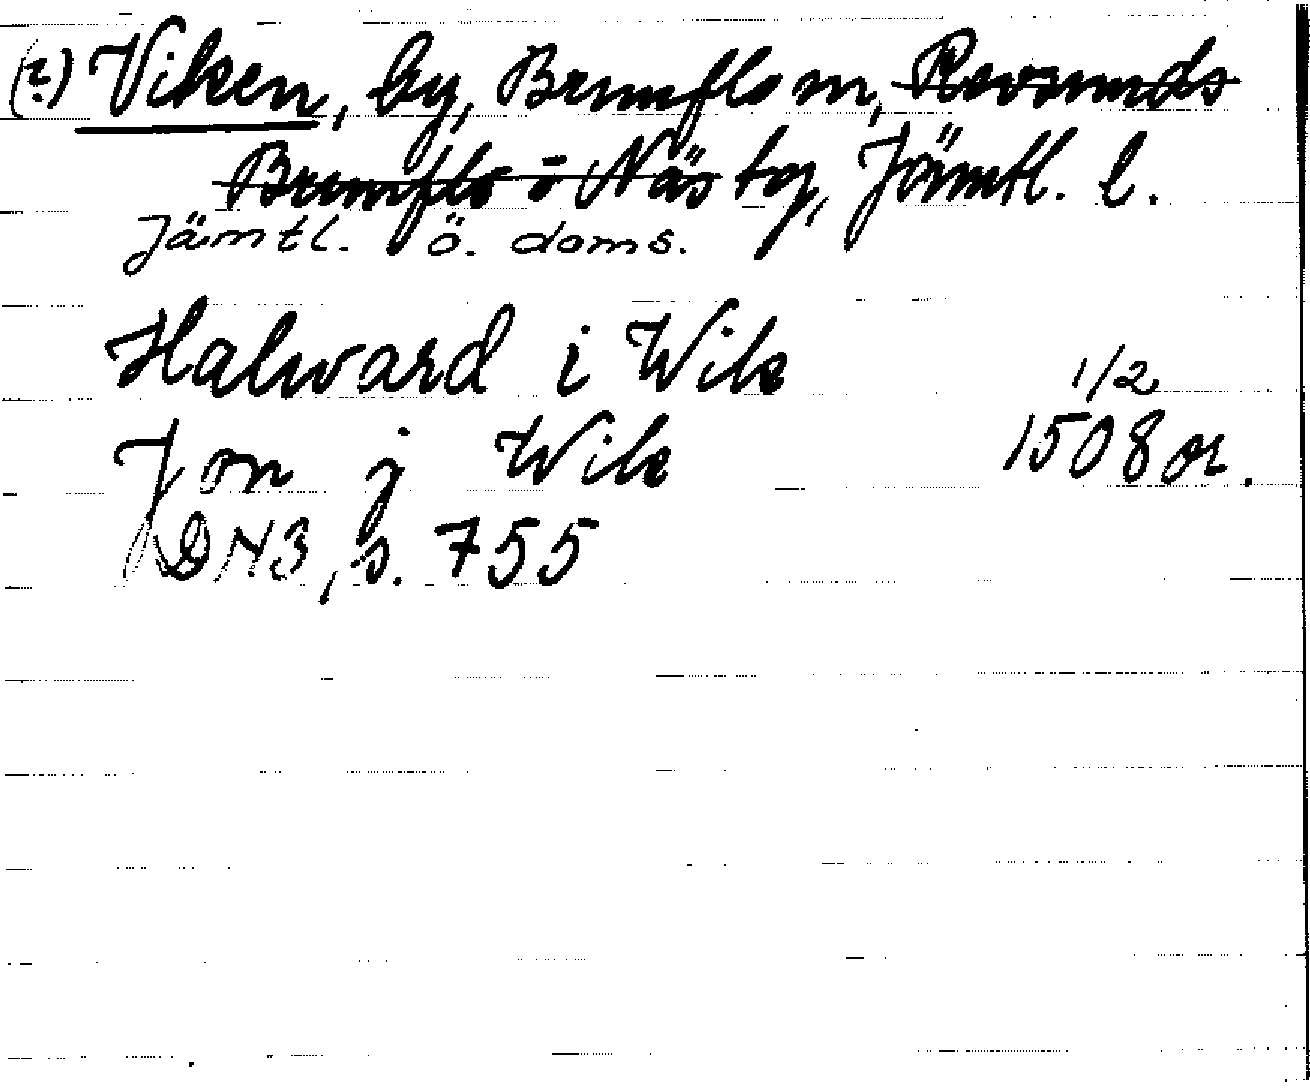 (?) Viken, by, Brunflo sn, Revsunds
Brunflo o Näs tg, Jämtl. l.
Jämtl. ö. doms.
Halward i Wik
1/2
Jon j Wik 1508 or.
DN3, s. 755